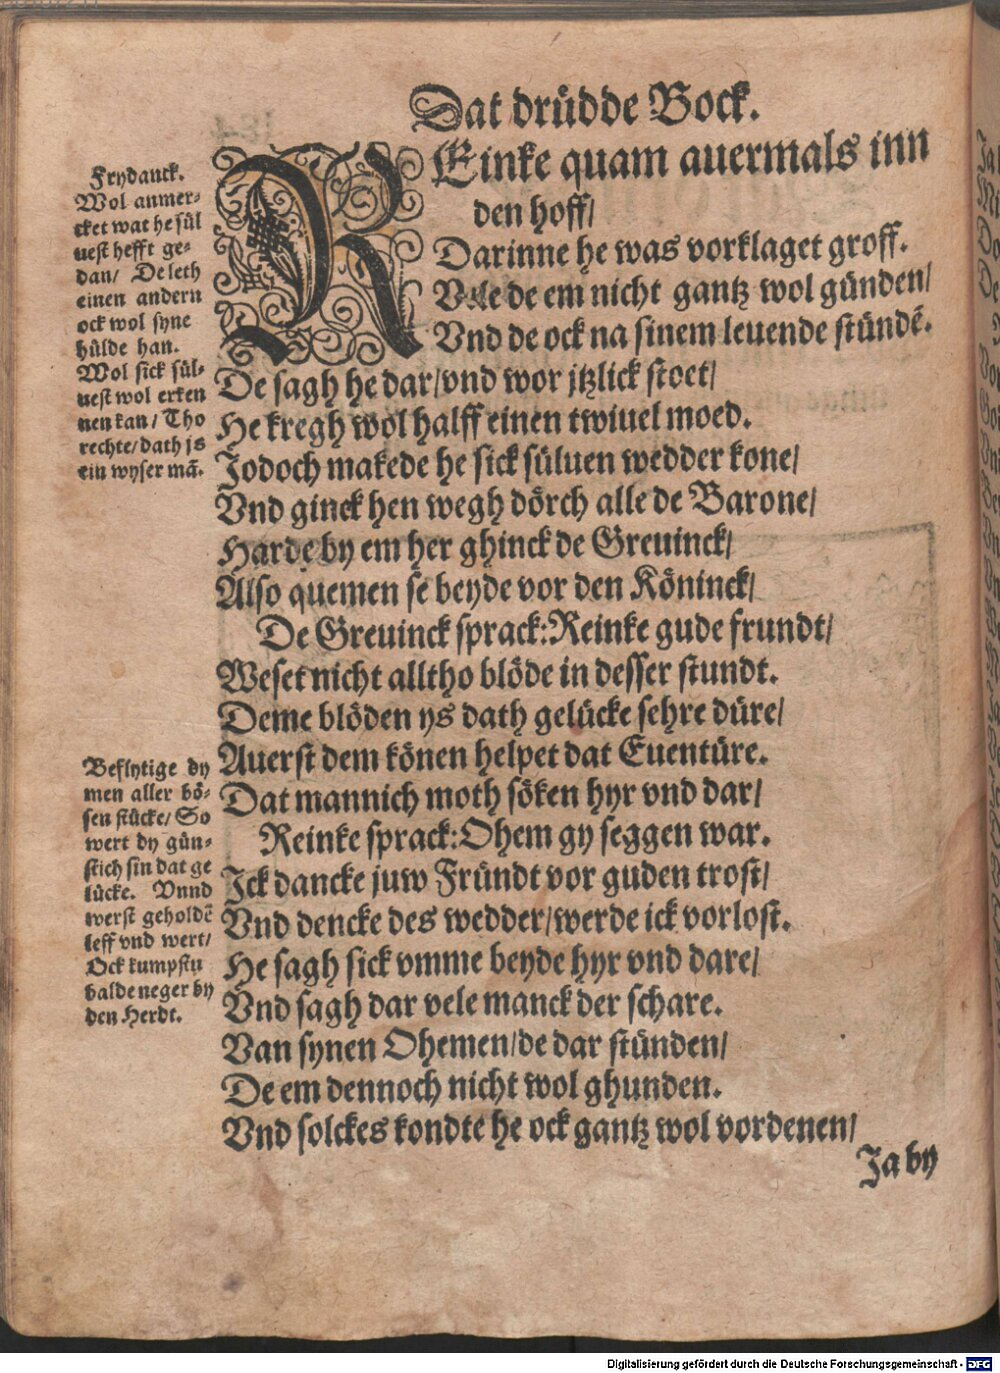 Dat drüdde Bock.
REinke quam auermals inn
den hoff/
Darinne he was vorklaget groff.
Vele de em nicht gantz wol günden/
Vnd de ock na sinem leuende stündē.
De sagh he dar/vnd wor jtzlick stoet/
He kregh wol halff einen twiuel moed.
Jodoch makede he sick süluen wedder kone/
Vnd ginck hen wegh dörch alle de Barone/
Harde by em her ghinck de Greuinck/
Also quemen se beyde vor den Köninck/
De Greuinck sprack:Reinke gude frundt/
Weset nicht alltho blöde in desser stundt.
Deme blöden ys dath gelücke sehre düre/
Auerst dem könen helpet dat Euentüre.
Dat mannich moth söken hyr vnd dar/
Reinke sprack:Ohem gy seggen war.
Ick dancke juw Fründt vor guden trost/
Vnd dencke des wedder/werde ick vorlost.
He sagh sick vmme beyde hyr vnd dare/
Vnd sagh dar vele manck der schare.
Van synen Ohemen/de dar stünden/
De em dennoch nicht wol ghunden.
Vnd solckes kondte he ock gantz wol vordenen/
Ja by
Frydanck.
Wol anmer-
cket wat he sül
uest hefft ge-
dan/ De leth
einen andern
ock wol syne
hülde han.
Wol sick sül-
uest wol erken
nen kan/ Tho
rechte/dath js
ein wyser mā.
Beflytige dy
men aller bö-
sen stücke/ So
wert dy gün-
stich sin dat ge
lücke. Vnnd
werst geholdē
leff vnd wert/
Ock kumpstu
balde neger by
den Herdt.
Digitalisierung gefördert durch die Deutsche Forschungsgemeinschaft - DFG